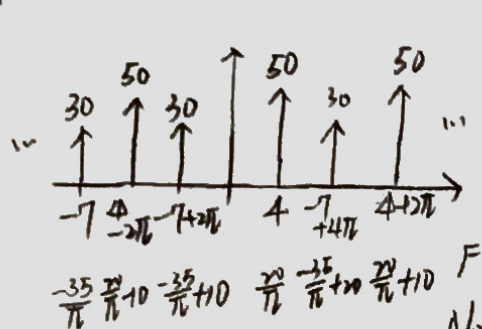 50 50
50 30
30 30
... ...
-7 4-2π -7+2π 4 -7+4π 4+2π
-35/π 20/π-10 -35/π+10 20/π -35/π+20 20/π+10
F